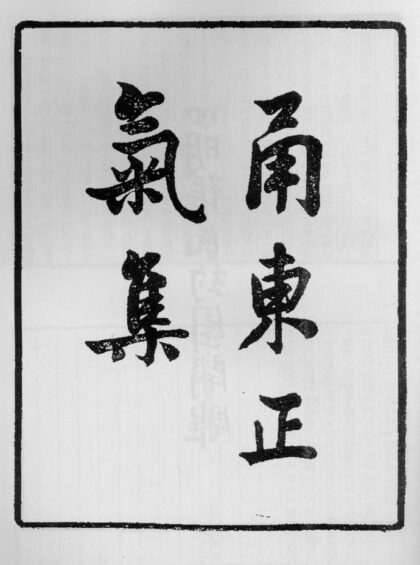 甬東正
氣集